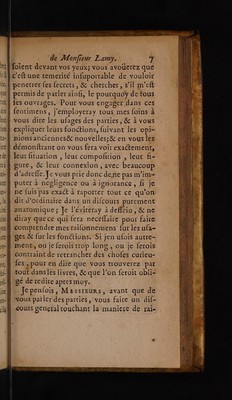 de Monsieur Lamy. 7
soient devant vos yeux; vous avoüerez que
c'est une temerité insuportable de vouloir
penetrer ses secrets, & chercher, s'il m'est
permis de parler ainsi, le pourquoy de tous
ses ouvrages. Pour vous engager dans ces
sentimens, j'employeray tous mes soins à
vous dire les usages des parties, & à vous
expliquer leurs fonctions, suivant les opi-
nions anciennes & nouvelles; & en vous les
démonstrant on vous fera voir exactement,
leur situation, leur composition, leur fi-
gure, & leur connexion, avec beaucoup
d'adresse. Je vous prie donc de ne pas m'im-
puter à negligence ou à ignorance, si je
ne suis pas exact à raporter tout ce qu'on
dit d'ordinaire dans un discours purement
anatomique; Je l'éviteray à dessein, & ne
diray que ce qui sera necessaire pour faire
comprendre mes raisonnemens sur les usa-
ges & sur les fonctions. Si j'en usois autre-
ment, ou je serois trop long, ou je serois
contraint de retrancher des choses curieu-
ses, pour en dire que vous trouverez par
tout dans les livres, & que l'on seroit obli-
gé de redire aprés moy.
Je pensois, MESSIEURS, avant que de
vous parler des parties, vous faire un dis-
cours general touchant la maniere de rai-